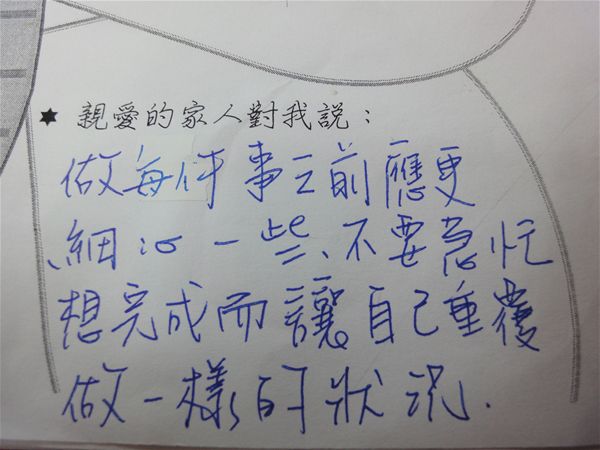 ★ 親愛的家人對我說：
做每件事之前應更
細心一些、不要急忙
想完成而讓自己重覆
做一樣的狀況.